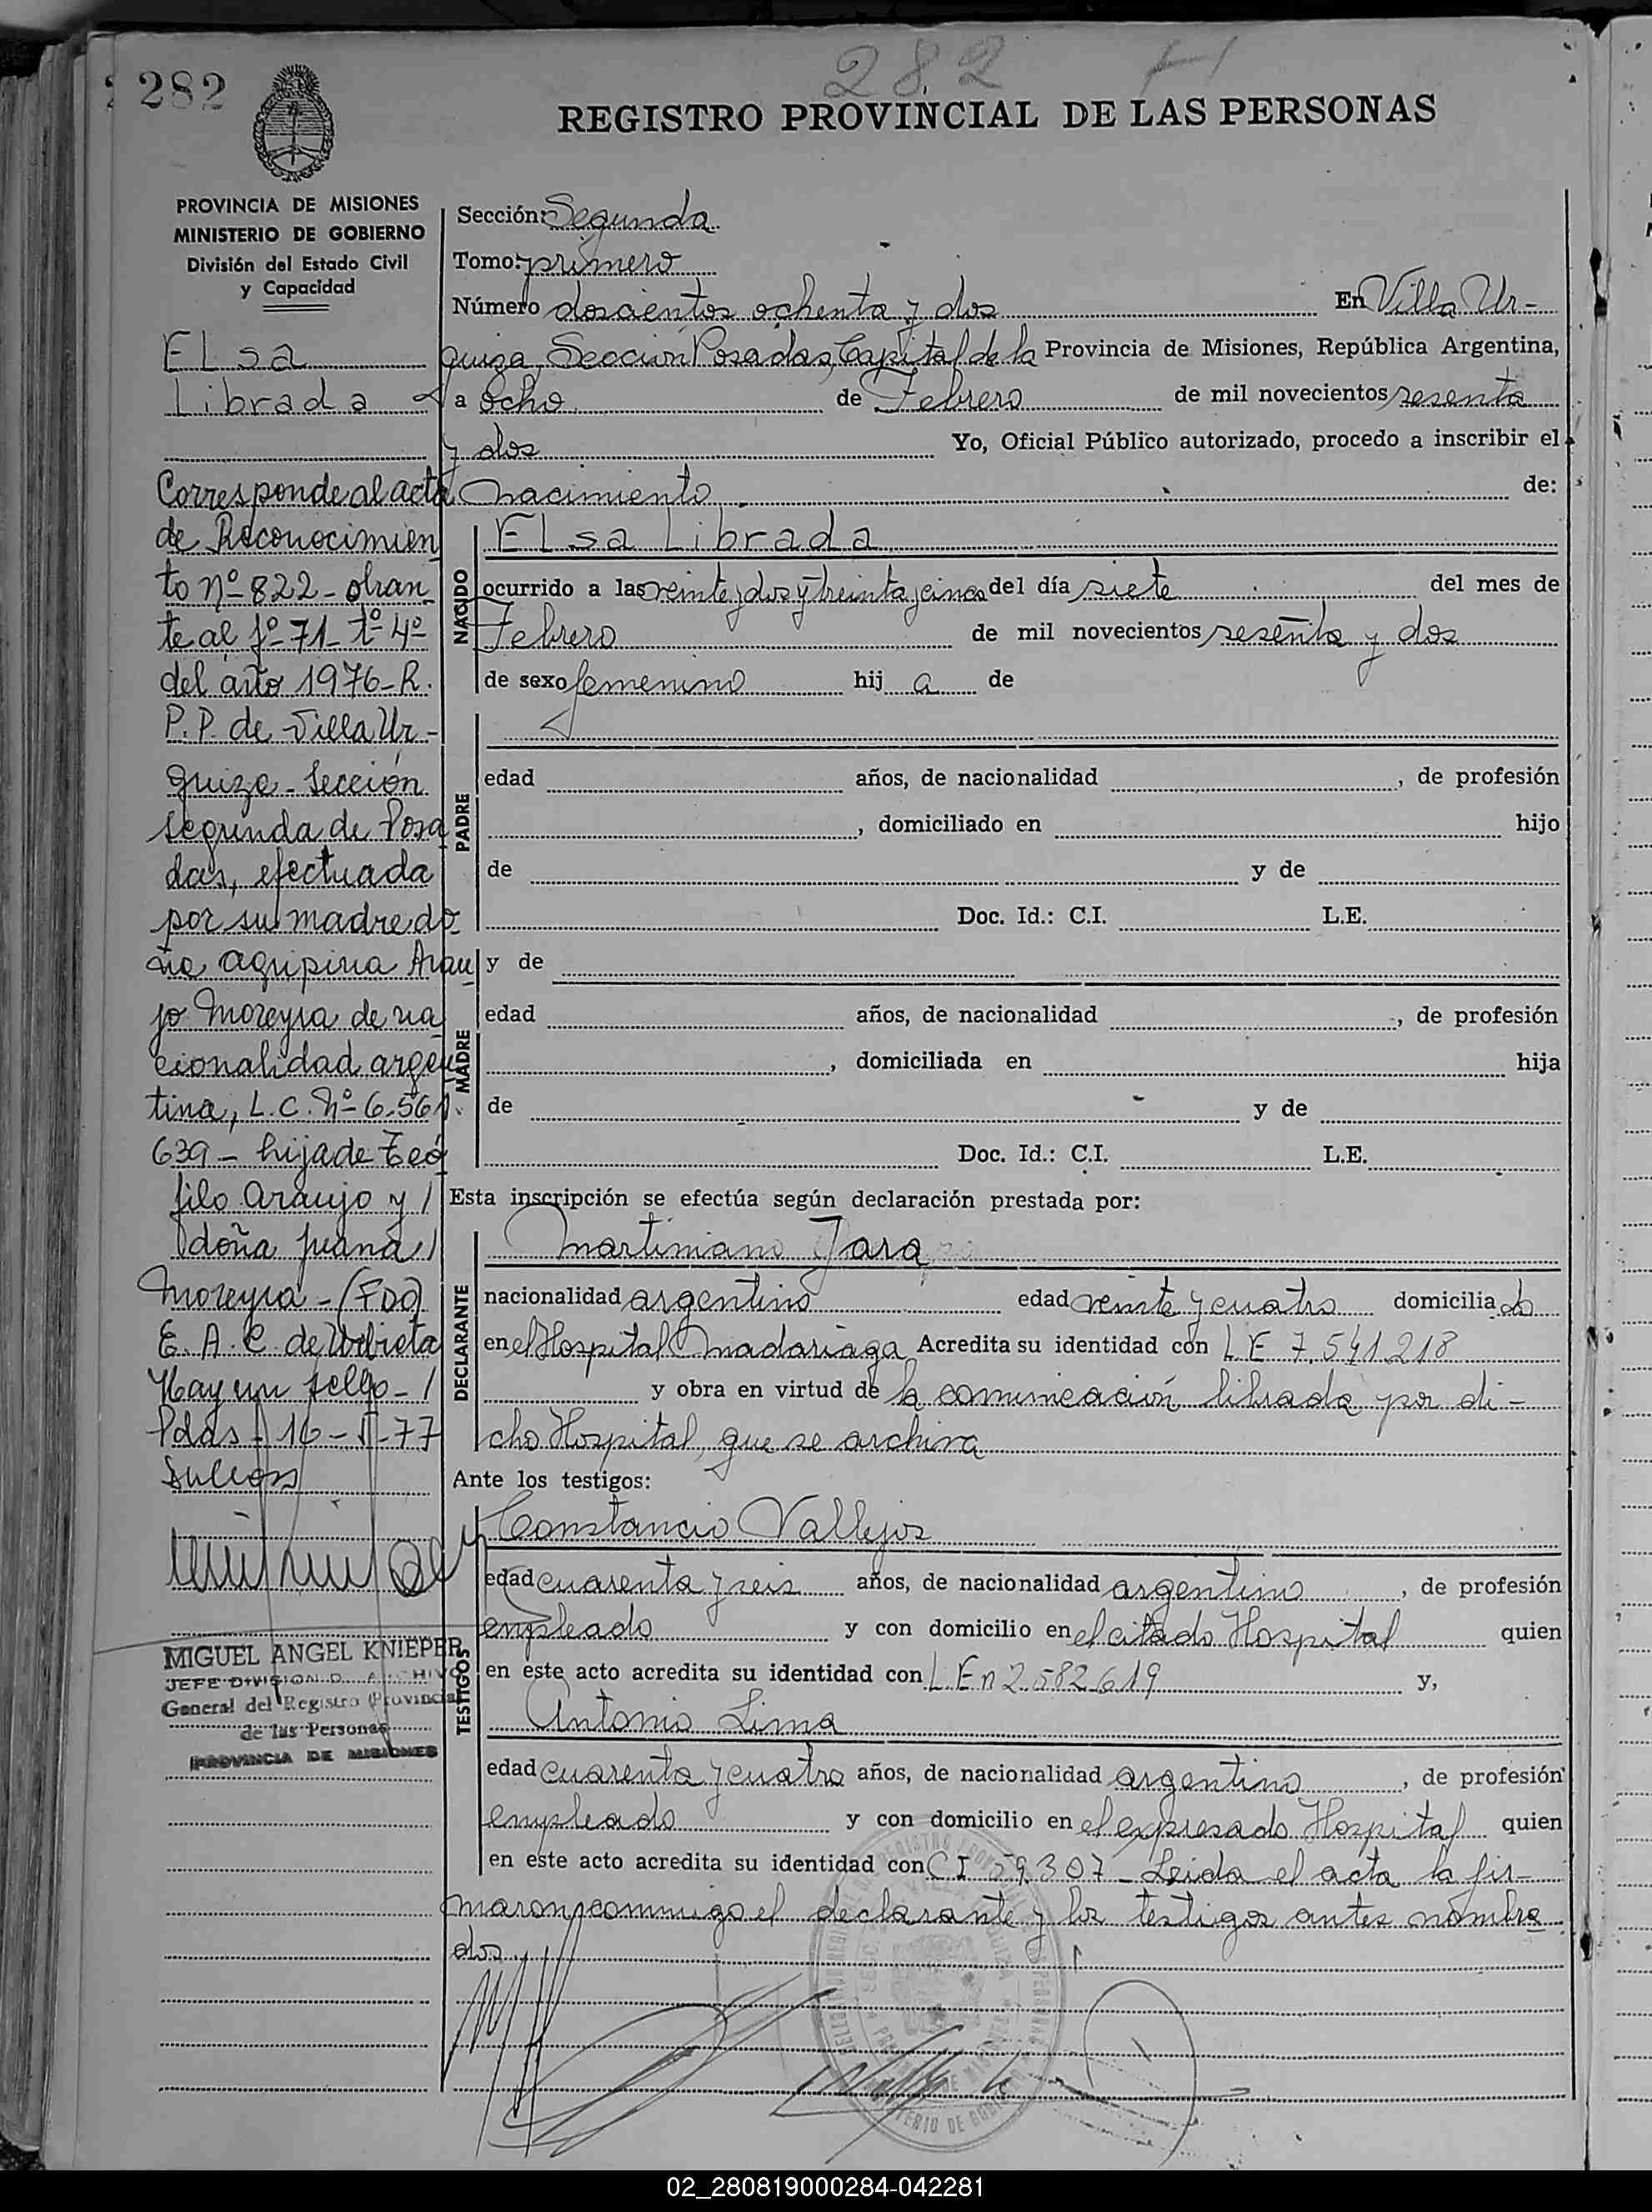 282
282
REGISTRO PROVINCIAL DE LAS PERSONAS
PROVINCIA DE MISIONES
MINISTERIO DE GOBIERNO
División del Estado Civil
y Capacidad
Elsa
Librada
Corresponde al acta
de Reconocimien
to nº 822 - obran
te al fº 71 - tº 4º
del año 1976 - R.
P.P. de Villa Ur-
quiza - Sección
segunda de Posa
das, efectuada
por su madre do
ña Agripina Arau
jo Moreyra de na
cionalidad argen
tina, L.C. nº 6.561.
639 - hija de Teó
filo Araujo y /
doña Juana /
Moreyra - (FDO)
E. A. C. de
Hay un sello - /
Pdas - 16 - -77
MIGUEL ANGEL KNIEPER
JEFE DIVISION ARCHIVO
General del Registro Provincial
de las Personas
PROVINCIA DE MISIONES
Sección: Segunda
Tomo: primero
Número doscientos ochenta y dos En Villa Ur-
quiza, Sección Posadas, Capital de la Provincia de Misiones, República Argentina,
a ocho de Febrero de mil novecientos sesenta
y dos Yo, Oficial Público autorizado, procedo a inscribir el
nacimiento de:
NACIDO
Elsa Librada
ocurrido a las veinte y dos y treinta y cinco del día siete del mes de
Febrero de mil novecientos sesenta y dos
de sexo femenino hij a de
PADRE
edad años, de nacionalidad , de profesión
, domiciliado en hijo
de y de
Doc. Id.: C.I. L.E.
y de
MADRE
edad años, de nacionalidad , de profesión
, domiciliada en hija
de y de
Doc. Id.: C.I. L.E.
Esta inscripción se efectúa según declaración prestada por:
DECLARANTE
Martiniano Jara
nacionalidad argentino edad veinte y cuatro domicilia do
en el Hospital Madariaga Acredita su identidad con L E 7.541.218
y obra en virtud de la comunicación librada por di-
cho Hospital, que se archiva
Ante los testigos:
TESTIGOS
Constancio Vallejos
edad cuarenta y seis años, de nacionalidad argentino , de profesión
empleado y con domicilio en el citado Hospital quien
en este acto acredita su identidad con L E n 2.582.619 y,
Antonio Lima
edad cuarenta y cuatro años, de nacionalidad argentino , de profesión
empleado y con domicilio en el expresado Hospital quien
en este acto acredita su identidad con C I 59.307 - Leida el acta la fir-
maron conmigo el declarante y los testigos antes nombra
dos
02_280819000284-042281